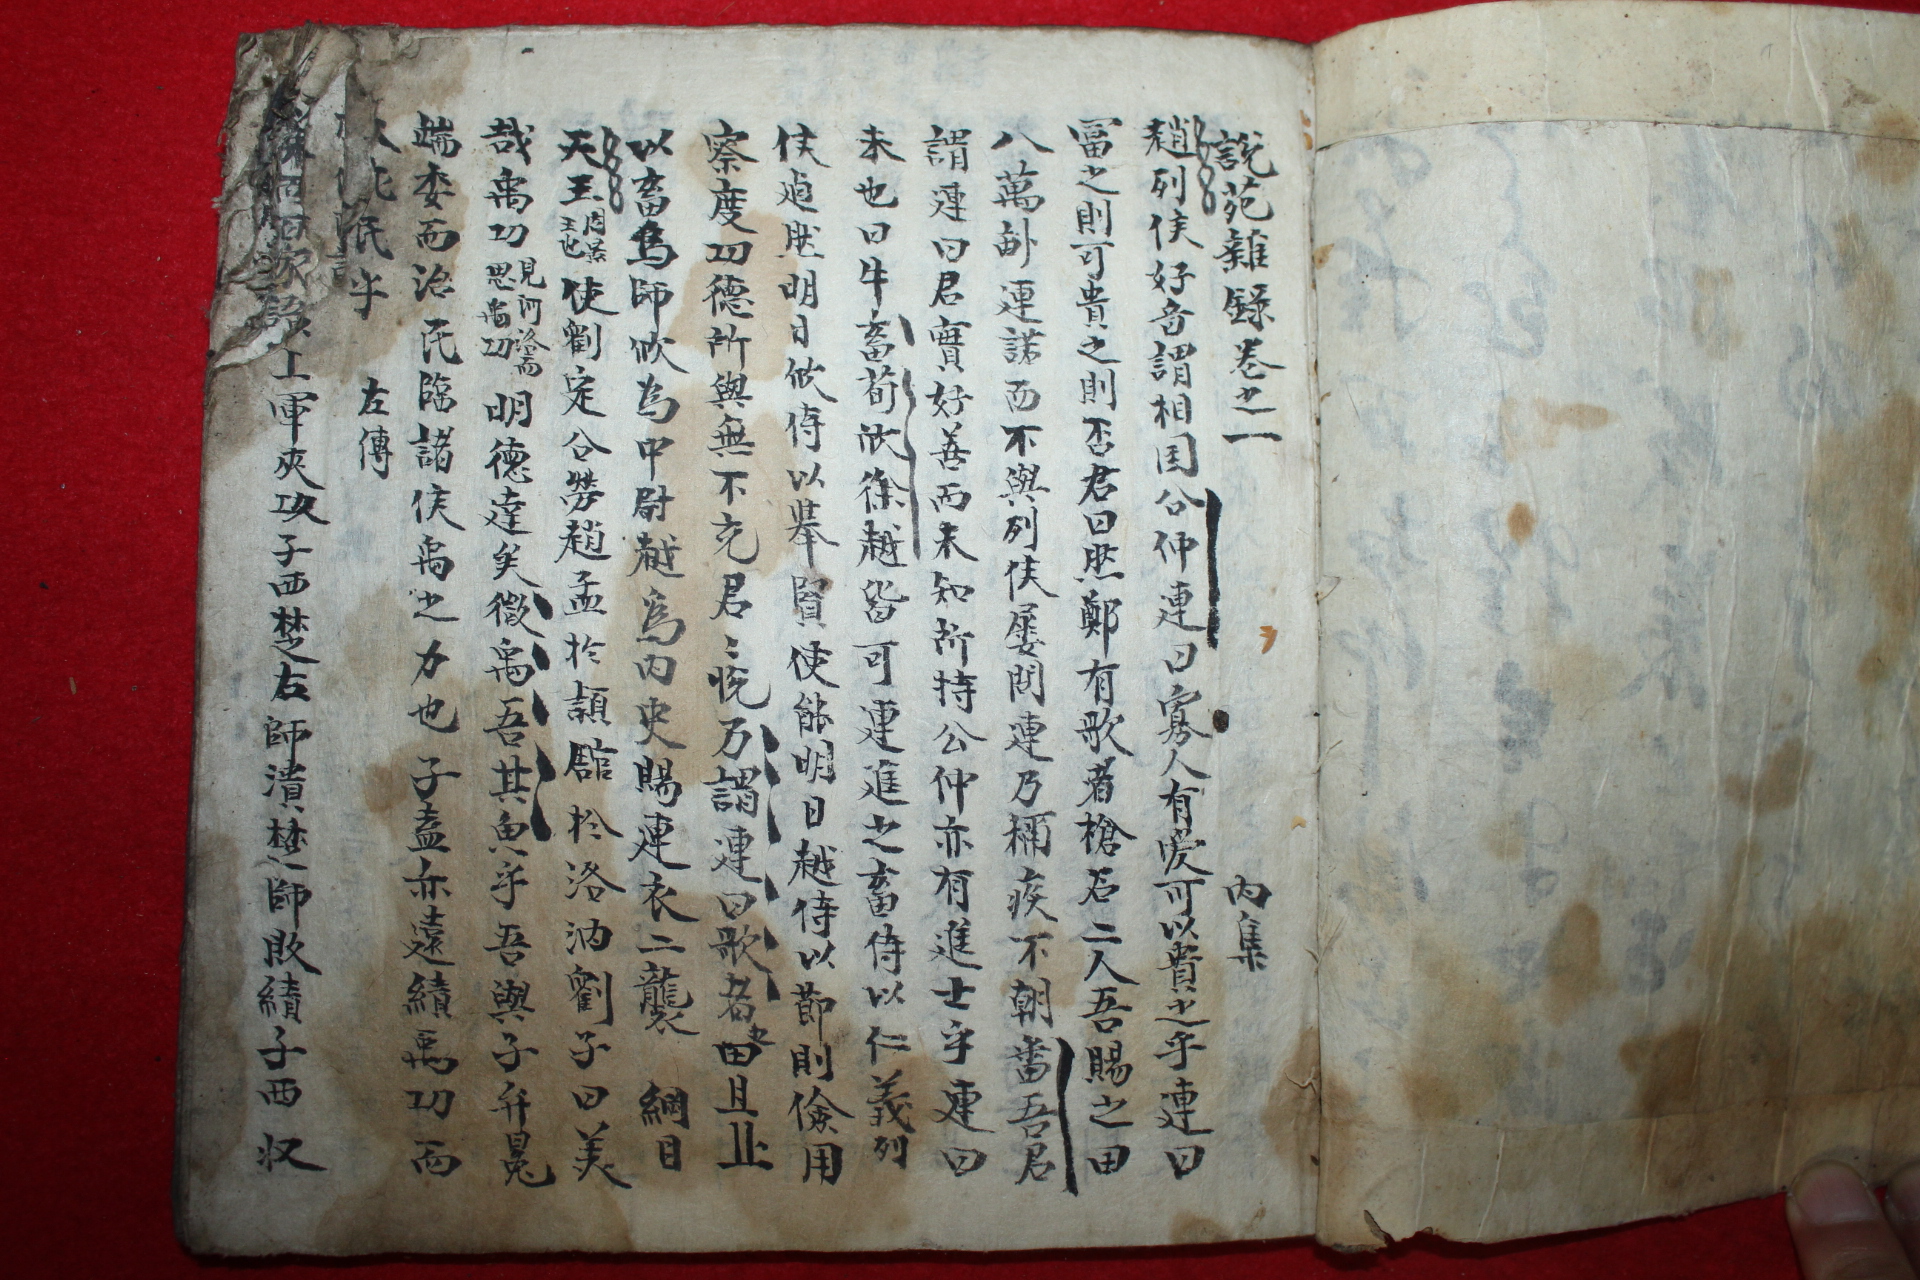 說苑雜錄卷之一 內集
趙列侯好音謂相国公仲連曰寡人有愛可以貴之乎連曰
富之則可貴之則否君曰然鄭有歌者槍石二人吾賜之田
八萬畝連諾而不與列侯屢問連乃稱疾不朝番吾君
謂連曰君實好善而未知所持公仲亦有進士乎連曰
未也曰牛畜荀欣徐越皆可連進之畜侍以仁義列
侯逌然明日欣侍以擧賢使能明日越侍以節則儉用
察度功德所與無不充君〻悅乃謂連曰歌者之田且止
以畜爲師欣爲中尉越爲內史賜連衣二襲 綱目
天王周景王也使劉定公勞趙孟於頴館於洛汭劉子曰美
哉禹功見河洛而思禹功明德遠矣微禹吾其魚乎吾與子弁冕
端委而治民臨諸侯禹之力也子盍亦遠績禹功而
大庇民乎 左傳
上軍夾攻子西楚左師潰楚師敗績子西収